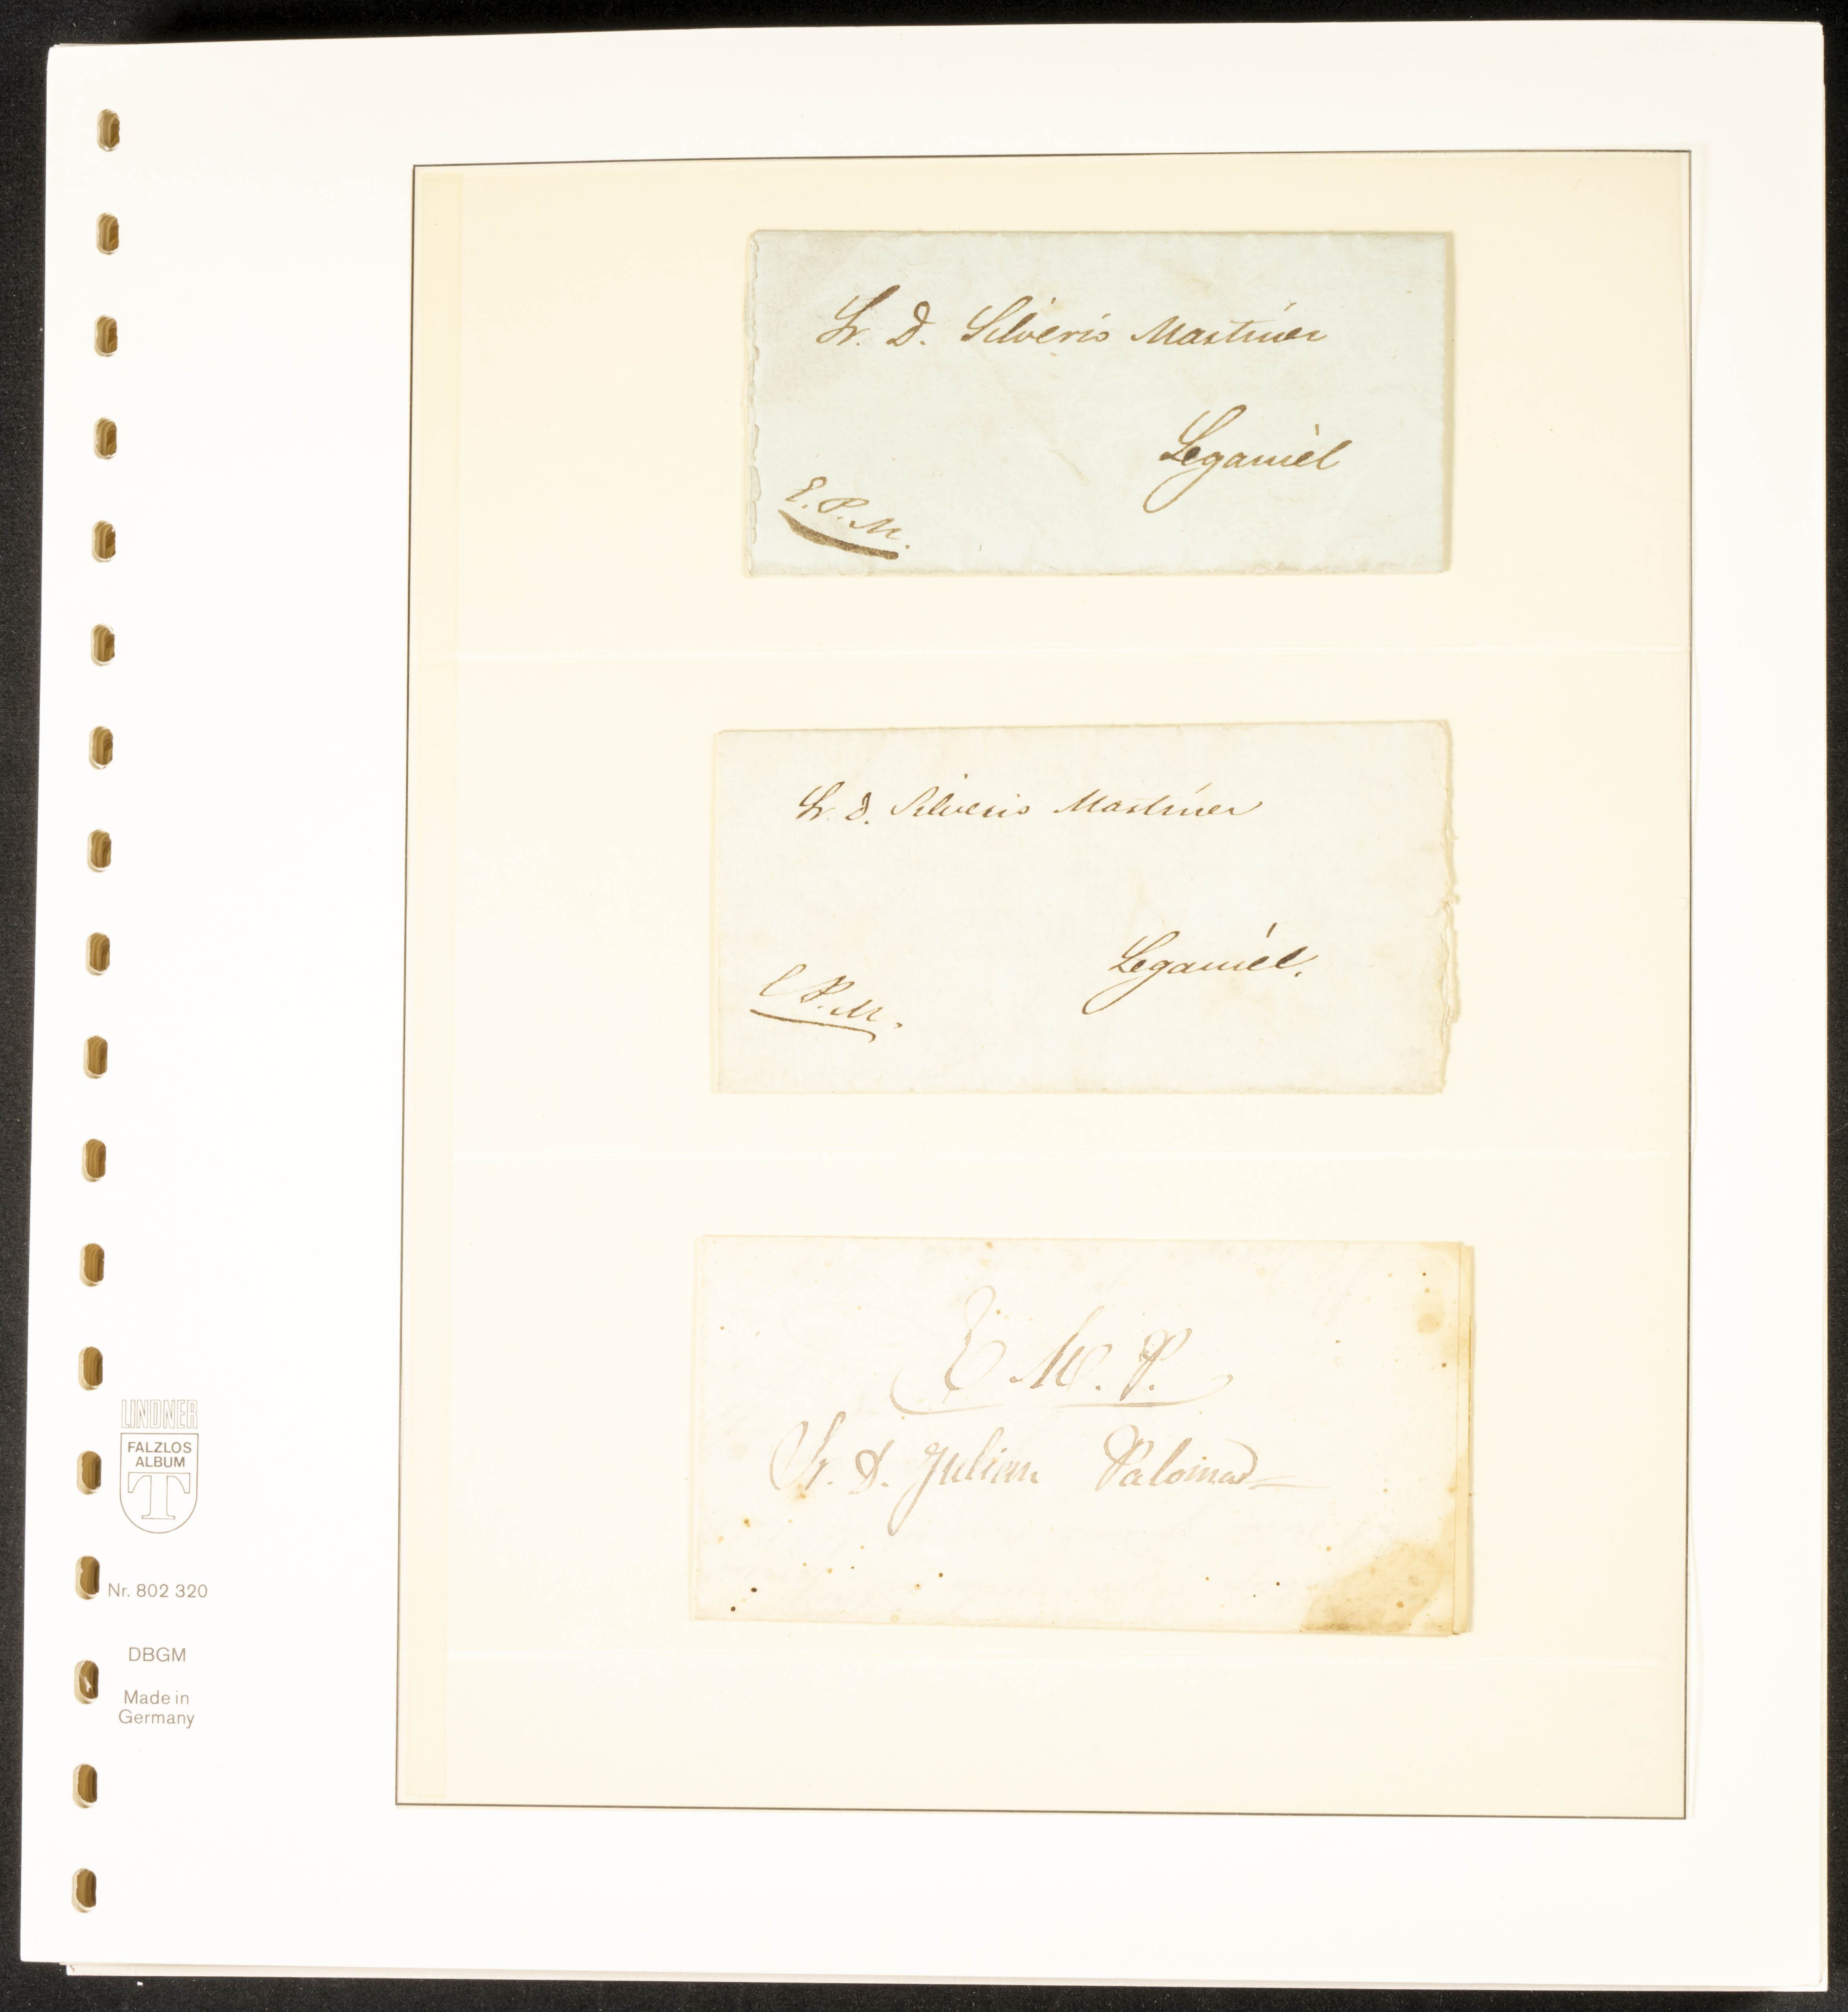 Sr. D. Silverio Martinez
Leganièl
E. P. M.
Sr. D. Silverio Martinez
Leganiél.
E P. M.
E M. P.
Sr. D. Julian Palomar
LINDNER
FALZLOS
ALBUM
T
Nr. 802 320
DBGM
Made in
Germany